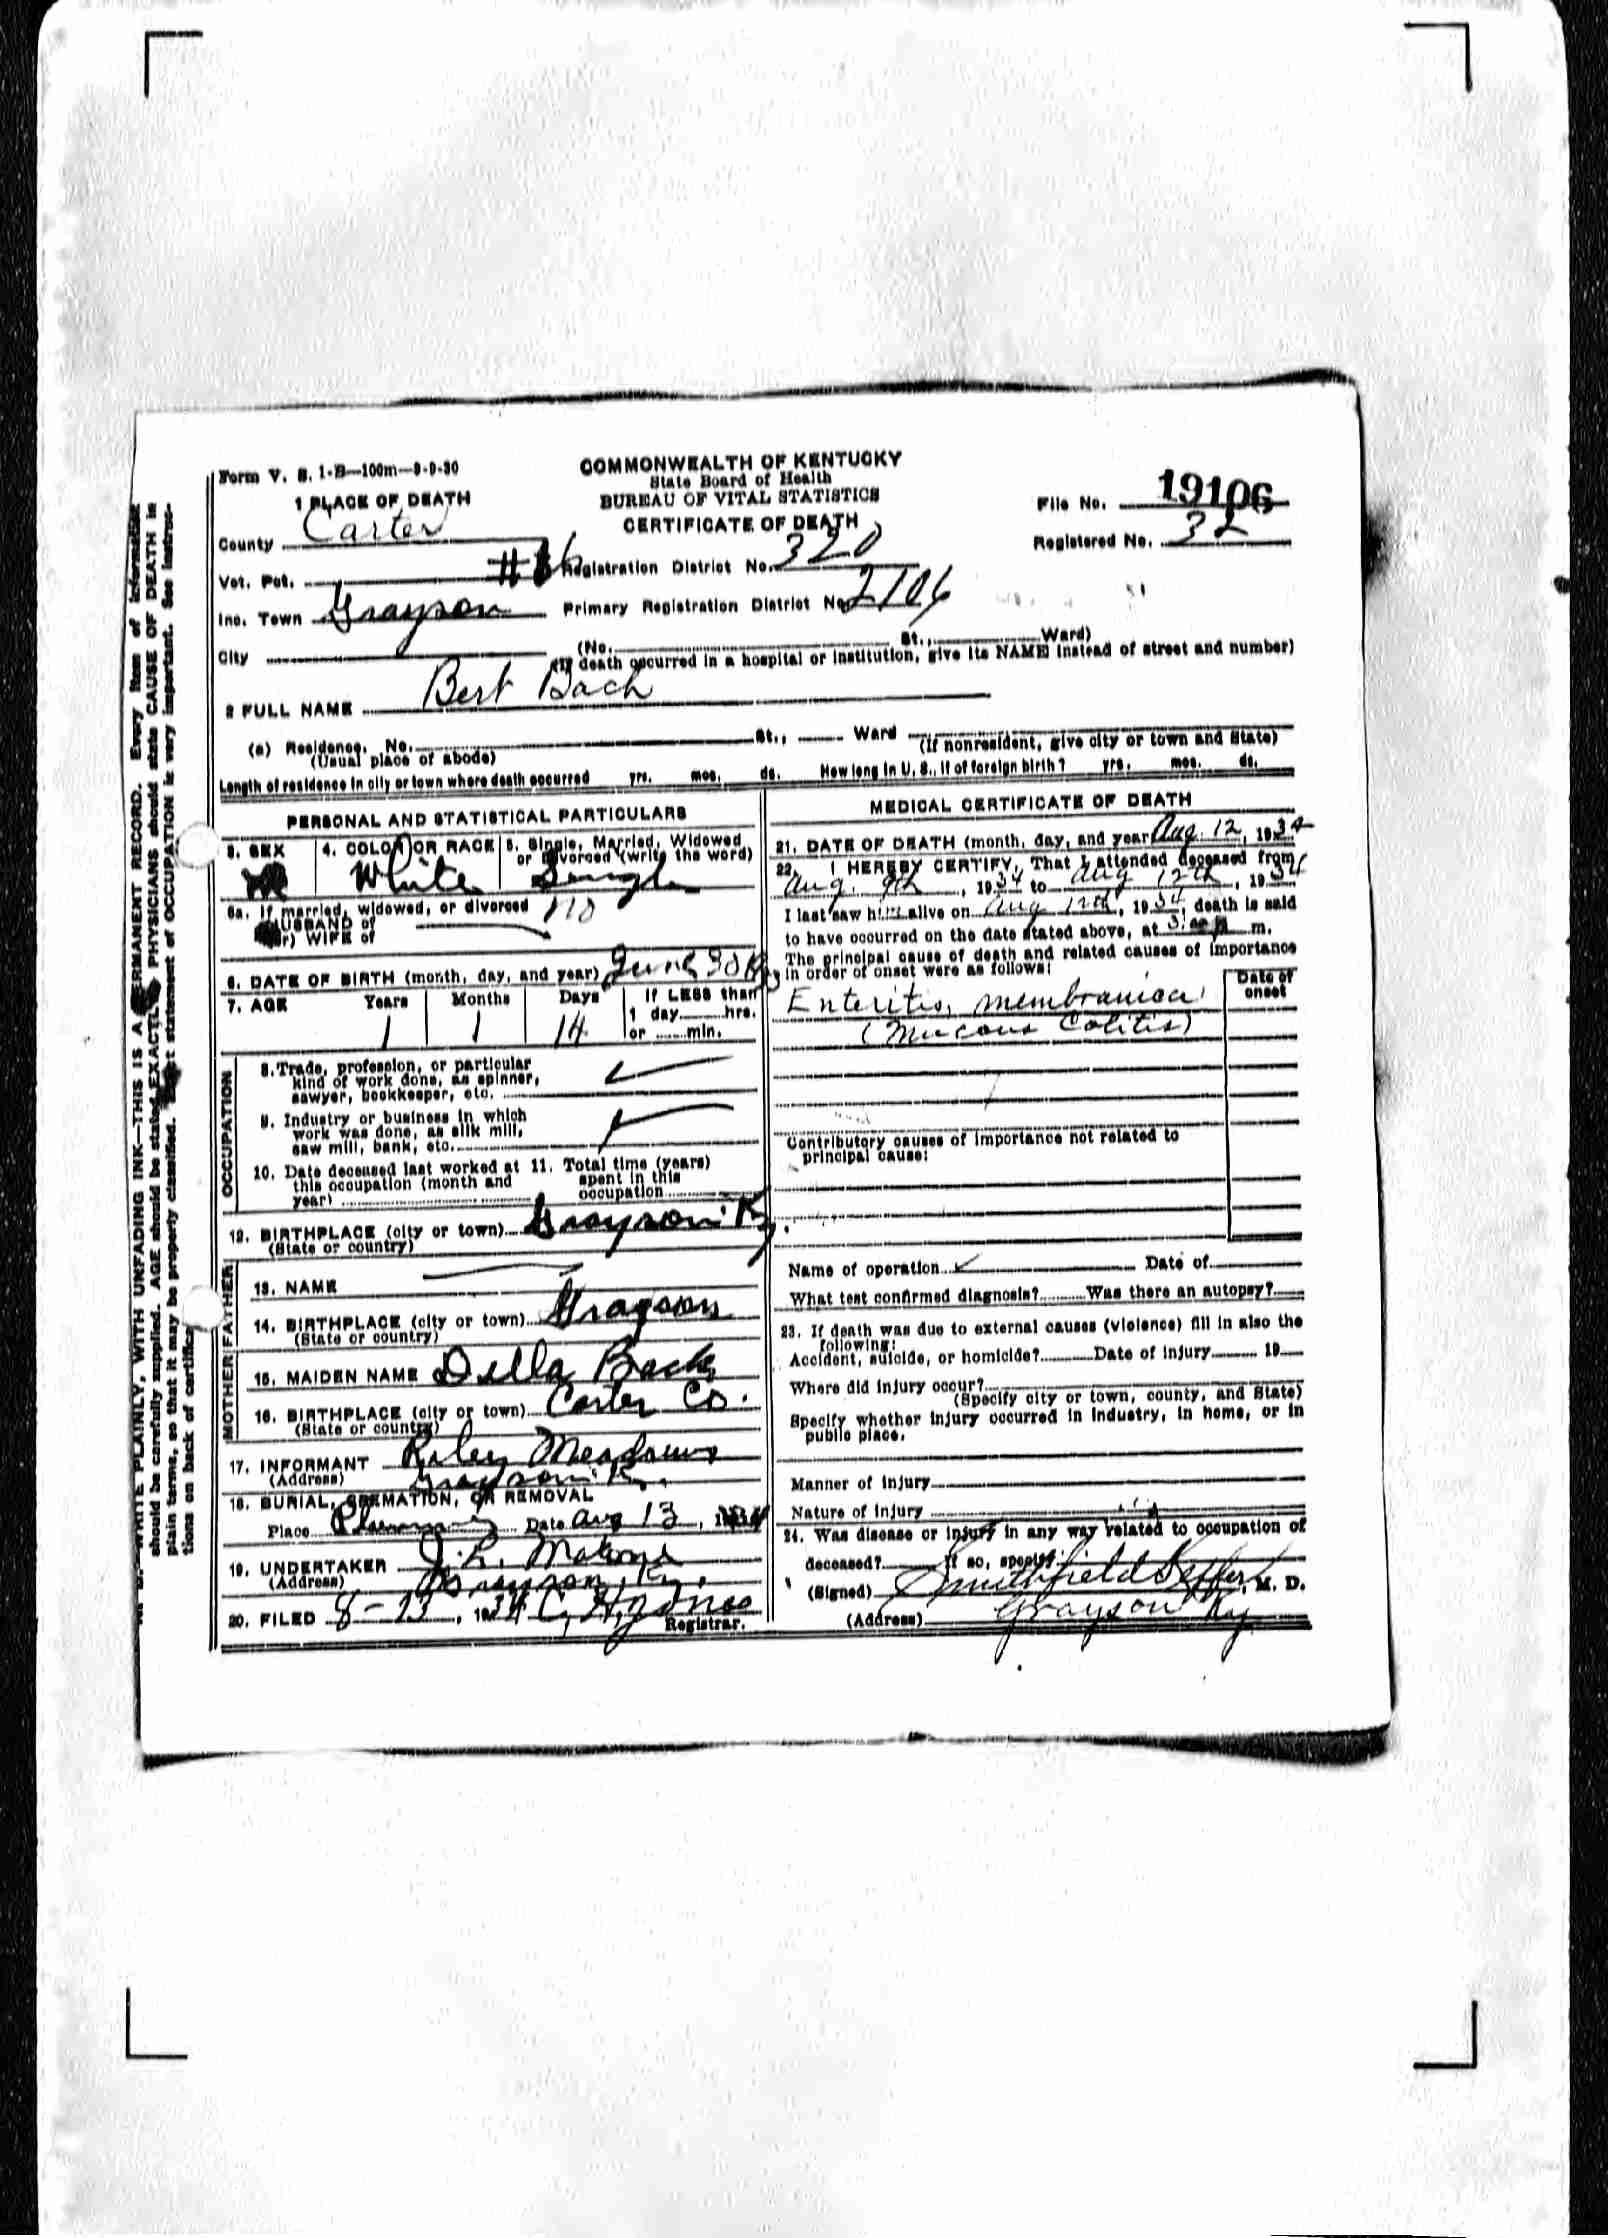 Form V. S. 1-B—100m—9-9-30
COMMONWEALTH OF KENTUCKY
State Board of Health
BUREAU OF VITAL STATISTICS
CERTIFICATE OF DEATH
File No. 19106
Registered No. 32
1 PLACE OF DEATH
County Carter
Vot. Pct. Registration District No. 320
Inc. Town Grayson Primary Registration District No. 2106
City (No. St., Ward)
(If death occurred in a hospital or institution, give its NAME instead of street and number)
2 FULL NAME Bert Bach
(a) Residence. No. St., Ward
(Usual place of abode) (If nonresident, give city or town and State)
Length of residence in city or town where death occurred yrs. mos. ds. How long in U. S., if of foreign birth? yrs. mos. ds.
PERSONAL AND STATISTICAL PARTICULARS
3. SEX
4. COLOR OR RACE White
5. Single, Married, Widowed
or Divorced (write the word)
Single
5a. If married, widowed, or divorced no
HUSBAND of
(or) WIFE of
6. DATE OF BIRTH (month, day, and year) June 30
7. AGE Years Months Days If LESS than
1 day hrs.
1 1 14 or min.
OCCUPATION
8. Trade, profession, or particular
kind of work done, as spinner,
sawyer, bookkeeper, etc.
9. Industry or business in which
work was done, as silk mill,
saw mill, bank, etc.
10. Date deceased last worked at 11. Total time (years)
this occupation (month and spent in this
year) occupation
12. BIRTHPLACE (city or town) Grayson Ky.
(State or country)
FATHER
13. NAME
14. BIRTHPLACE (city or town) Grayson
(State or country)
MOTHER
15. MAIDEN NAME Della Back
16. BIRTHPLACE (city or town) Carter Co.
(State or country)
17. INFORMANT Riley Meadows
(Address) Grayson Ky.
18. BURIAL, CREMATION, OR REMOVAL
Place Date Aug 13, 1934
19. UNDERTAKER J. L. Malone
(Address) Grayson, Ky.
20. FILED 8-13, 1934 C. H. Jones
Registrar.
MEDICAL CERTIFICATE OF DEATH
21. DATE OF DEATH (month, day, and year) Aug. 12, 1934
22. I HEREBY CERTIFY, That I attended deceased from
Aug. 9th, 1934 to Aug 12th, 1934
I last saw him alive on Aug 12th, 1934, death is said
to have occurred on the date stated above, at m.
The principal cause of death and related causes of importance
in order of onset were as follows:
Date of
onset
Enteritis, membranica
(Mucous Colitis)
Contributory causes of importance not related to
principal cause:
Name of operation Date of
What test confirmed diagnosis? Was there an autopsy?
23. If death was due to external causes (violence) fill in also the
following:
Accident, suicide, or homicide? Date of injury 19
Where did injury occur?
(Specify city or town, county, and State)
Specify whether injury occurred in industry, in home, or in
public place.
Manner of injury
Nature of injury
24. Was disease or injury in any way related to occupation of
deceased? If so, specify
(Signed) Smithfield Keffer, M. D.
(Address) Grayson Ky
WRITE PLAINLY, WITH UNFADING INK—THIS IS A PERMANENT RECORD. Every item of information
should be carefully supplied. AGE should be stated EXACTLY. PHYSICIANS should state CAUSE OF DEATH in
plain terms, so that it may be properly classified. statement of OCCUPATION is very important. See instruc-
tions on back of certificate.